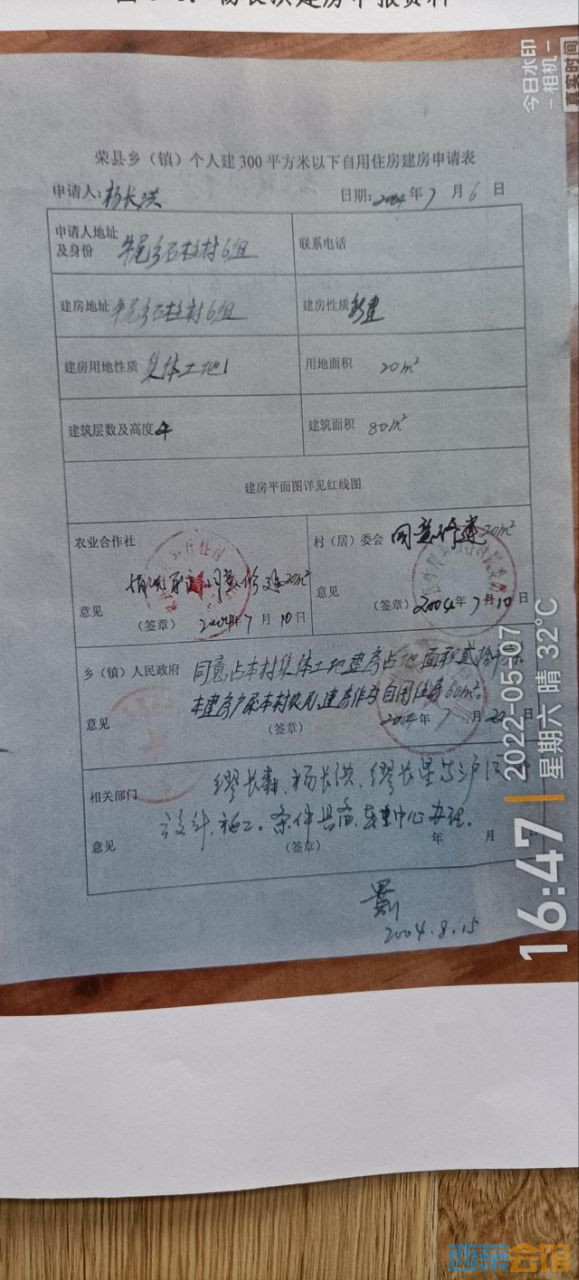 杨长洪建房申报资料
荣县乡(镇)个人建300平方米以下自用住房建房申请表
申请人:杨长洪 日期:2004年7月6日
申请人地址及身份 牛尾乡石柱村6组 联系电话
建房地址 牛尾乡石柱村6组 建房性质 新建
建房用地性质 集体土地 用地面积 20m²
建筑层数及高度 4 建筑面积 80m²
建房平面图详见红线图
农业合作社 村(居)委会 同意修建20m²
同意修建20m²
意见 意见
(签章) 2004年7月10日 (签章) 2004年7月10日
乡(镇)人民政府 同意占本村集体土地建房占地面积贰拾
本建房户系本村农民,建房作为自用住房60m².
意见 (签章) 2004年7月20日
相关部门 缪长森、杨长洪、缪长星
设计、施工。条件具备,中心办理。
意见 (签章) 年 月
2004.8.15
今日水印
-相机-
真实时间
16:47
2022-05-07
星期六 晴 32℃
西菜会馆